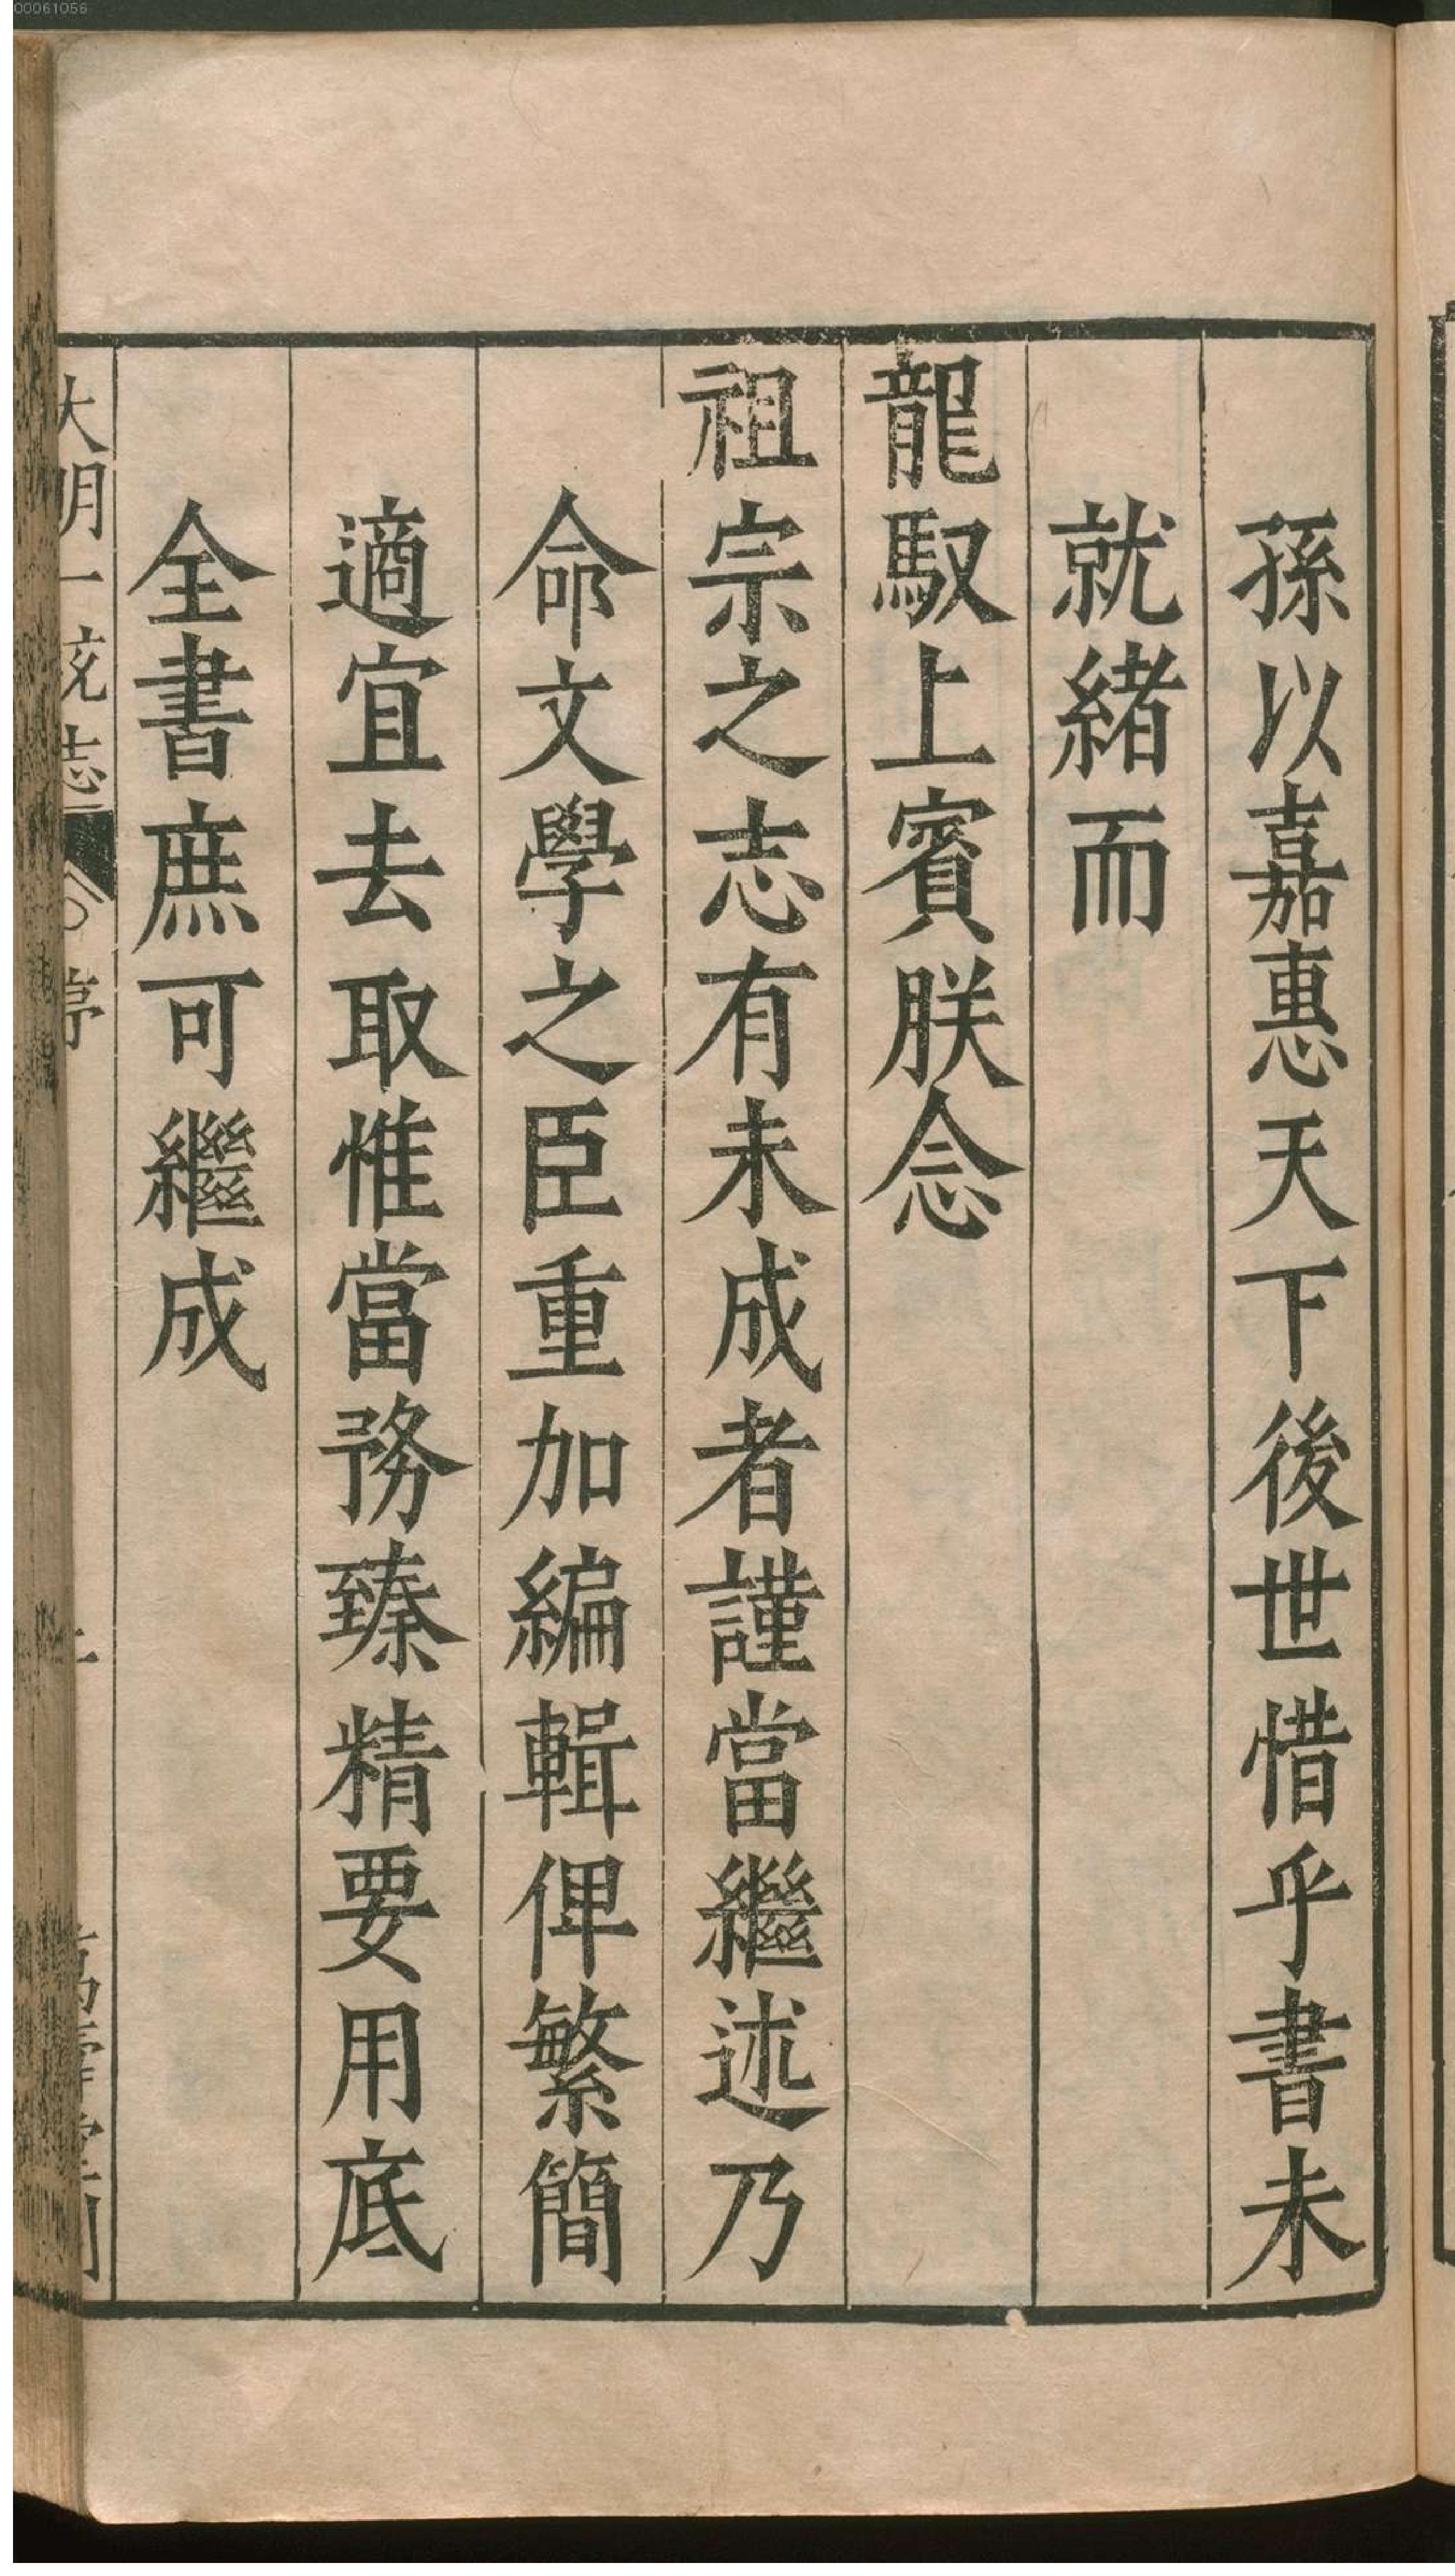 00061056
孫以嘉惠天下後世惜乎書未
就緒而
龍馭上賓朕念
祖宗之志有未成者謹當繼述乃
命文學之臣重加編輯俾繁簡
適宜去取惟當務臻精要用底
全書庶可繼成
大明一统志